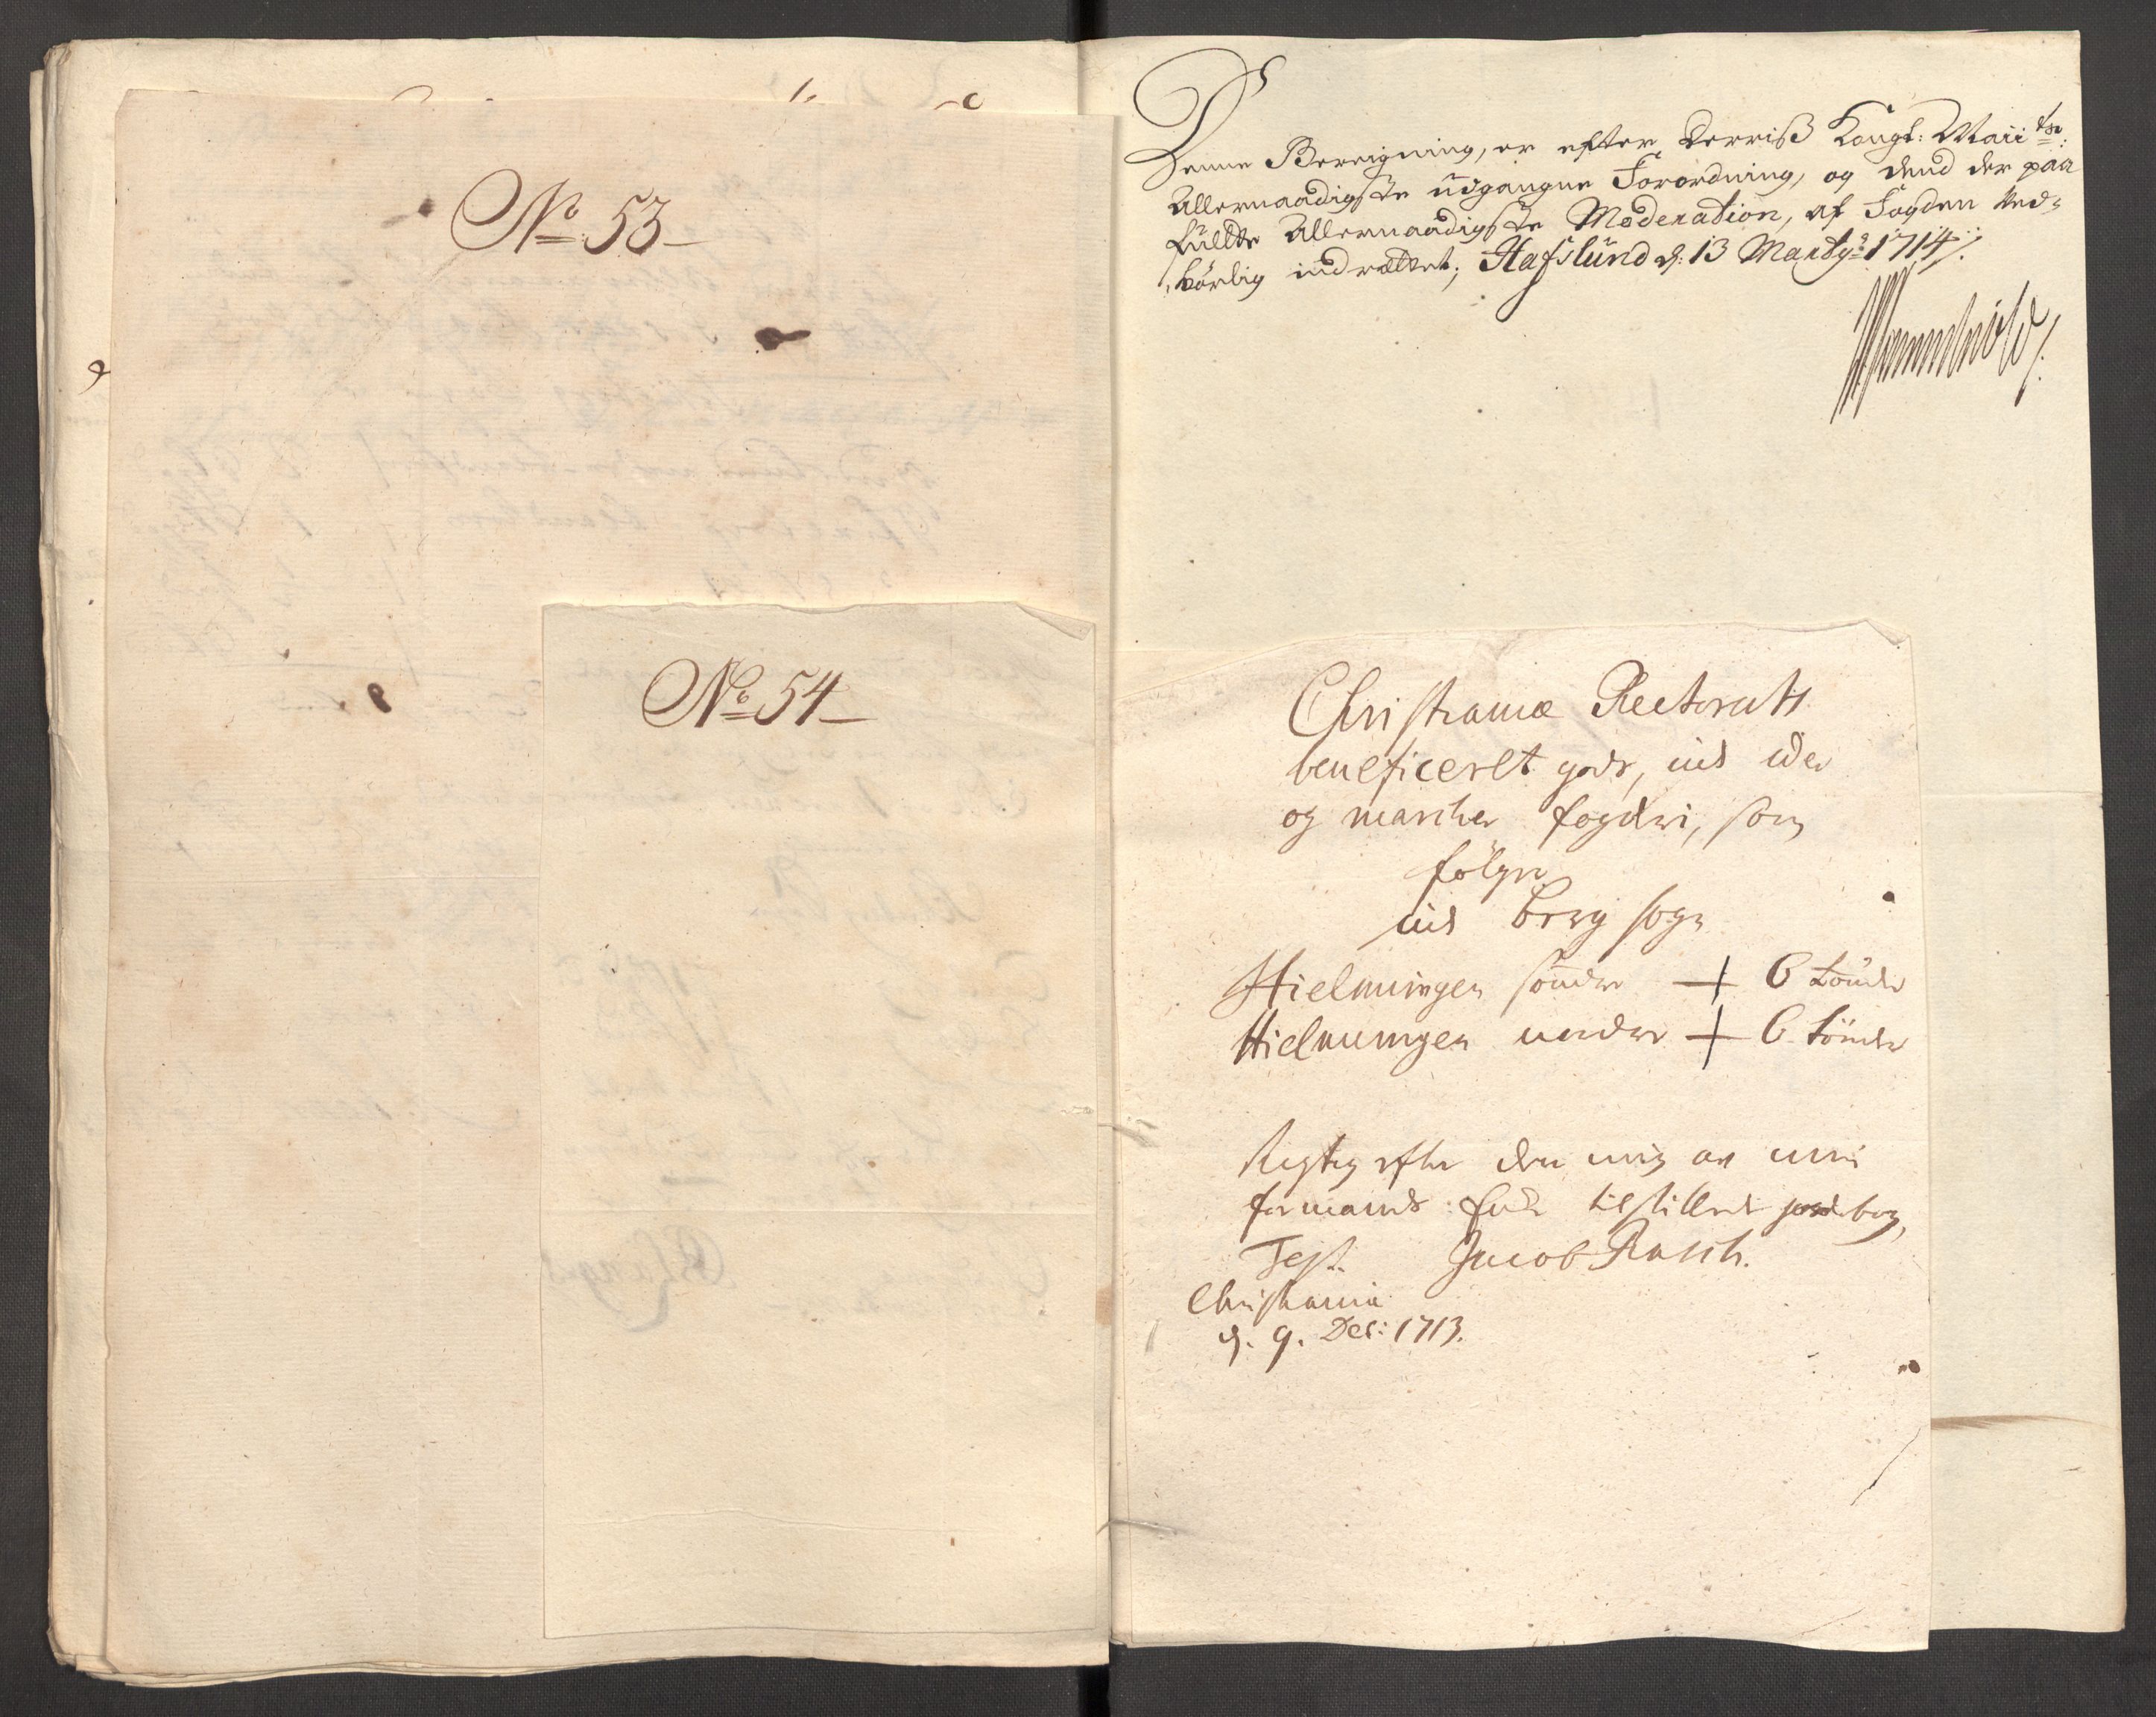 No 53
No 54
Denne Beregning, er efter Derris Kongl: Maiits:
Allernaadigste udgangne Forordning, og dend der paa
fulte Allernaadigste Moderation, af Fogden ved-
börlig indrættet; Hafslund d: 13 Marty 1714
Christianiæ Rectorats
beneficeret gods, ud Ide
og marcher fogderi, som
fölger
ud berg sogn
Hielmungen söndre + 6 tönder
Hielmungen nordre + 6 tönder
Rigtig efter den mig af min
formands frue tilstillede jordebog,
Test. Jacob Rasch.
Christiania
d. 9. Dec: 1713.